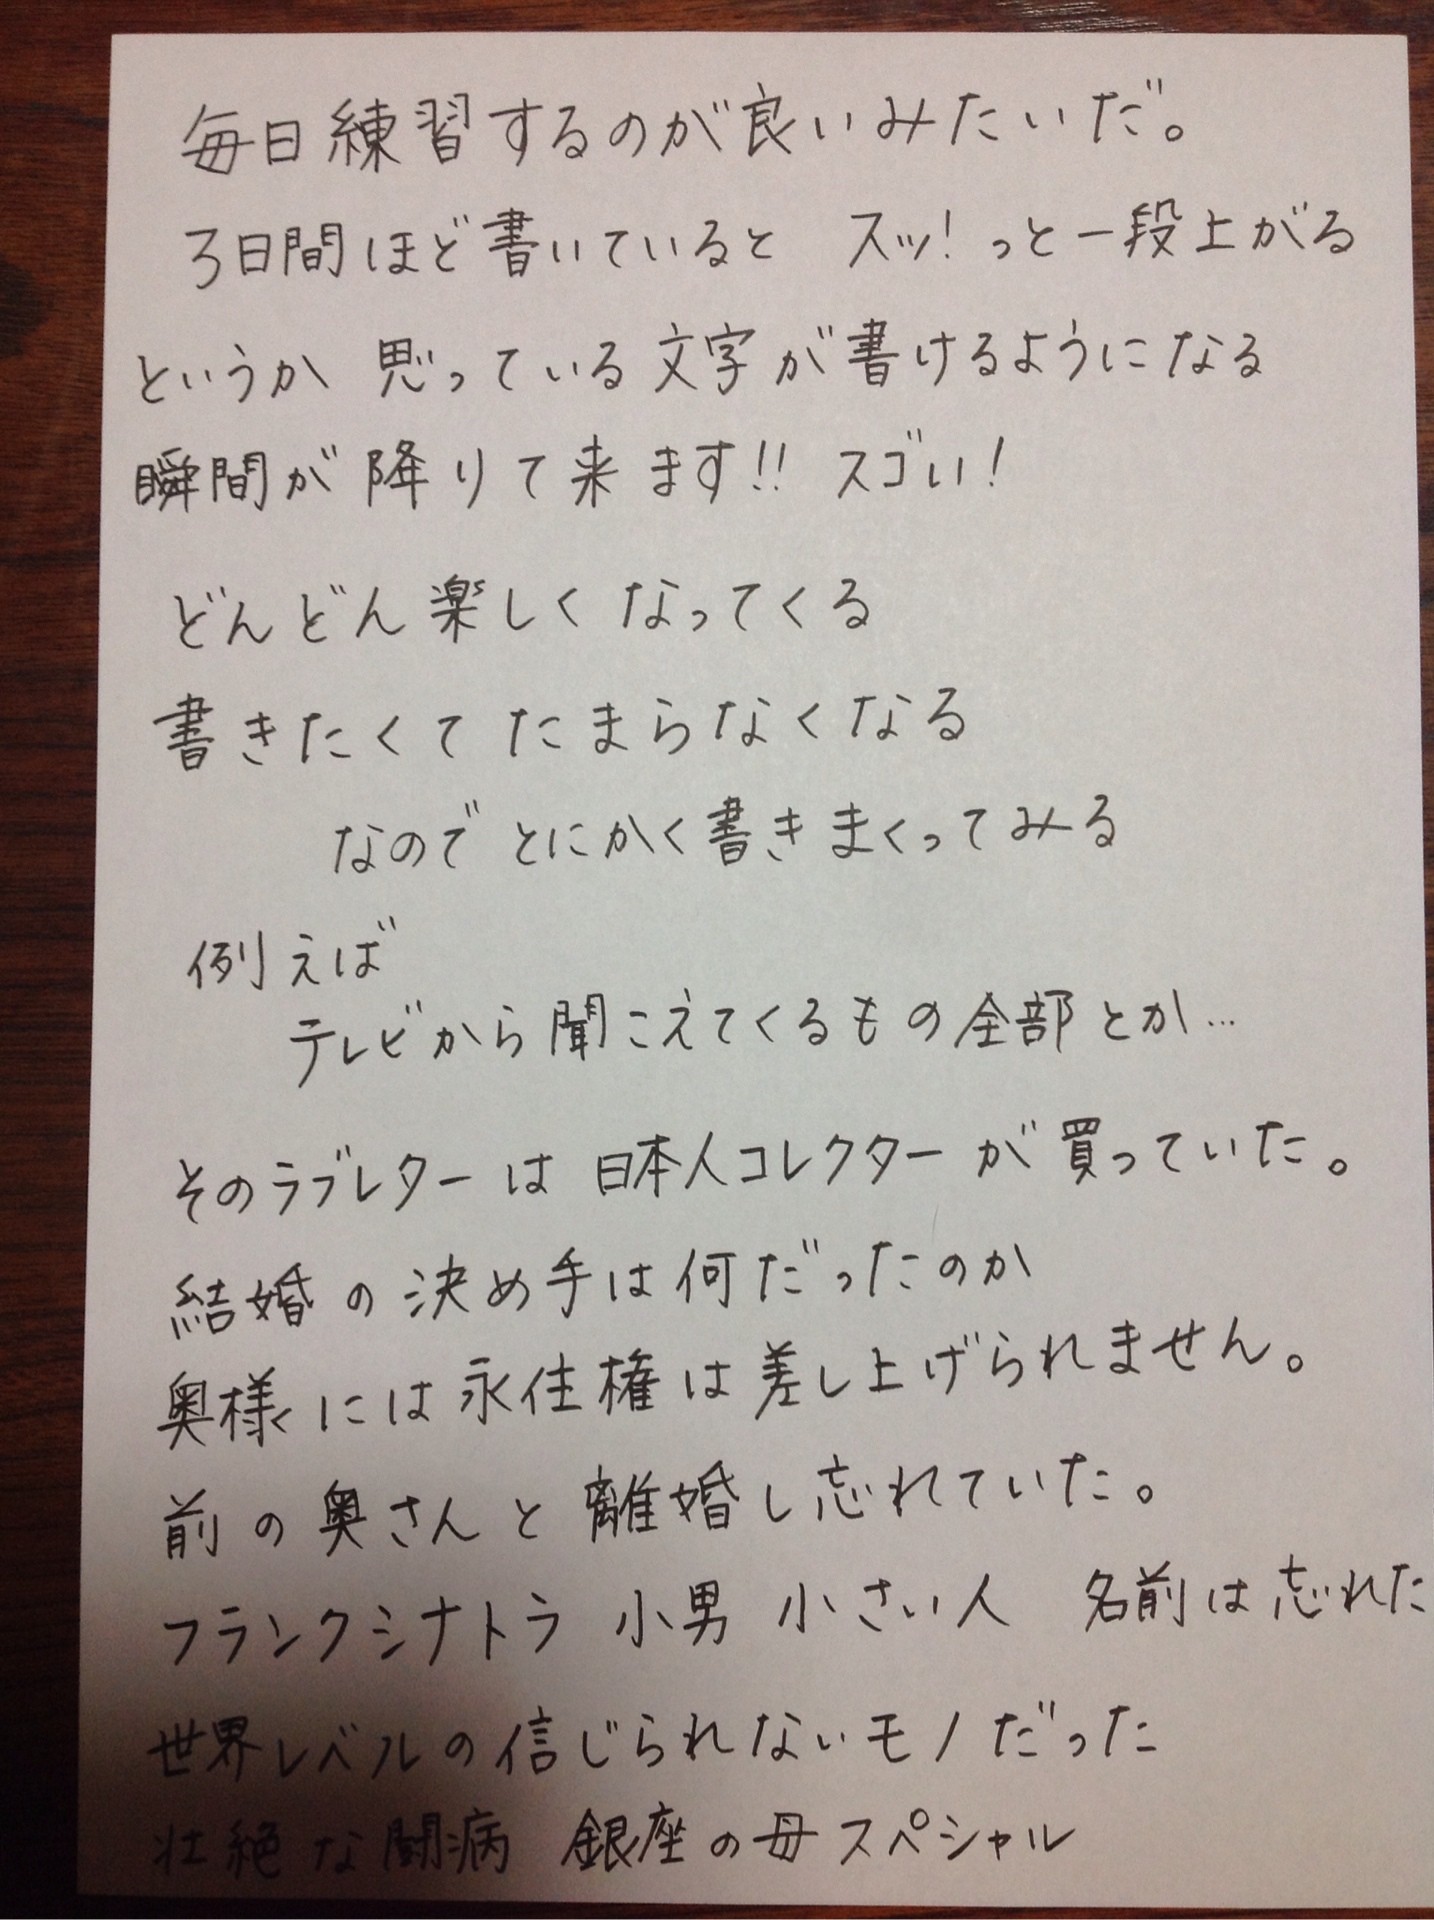 毎日練習するのが良いみたいだ。
3日間ほど書いていると スッ!っと一段上がる
というか 思っている文字が書けるようになる
瞬間が降りて来ます!! スゴい!
どんどん楽しくなってくる
書きたくてたまらなくなる
なのでとにかく書きまくってみる
例えば
テレビから聞こえてくるもの全部とか…
そのラブレターは日本人コレクターが買っていた。
結婚の決め手は何だったのか
奥様には永住権は差し上げられません。
前の奥さんと離婚し忘れていた。
フランクシナトラ 小男 小さい人 名前は忘れた
世界レベルの信じられないモノだった
壮絶な闘病 銀座の母スペシャル